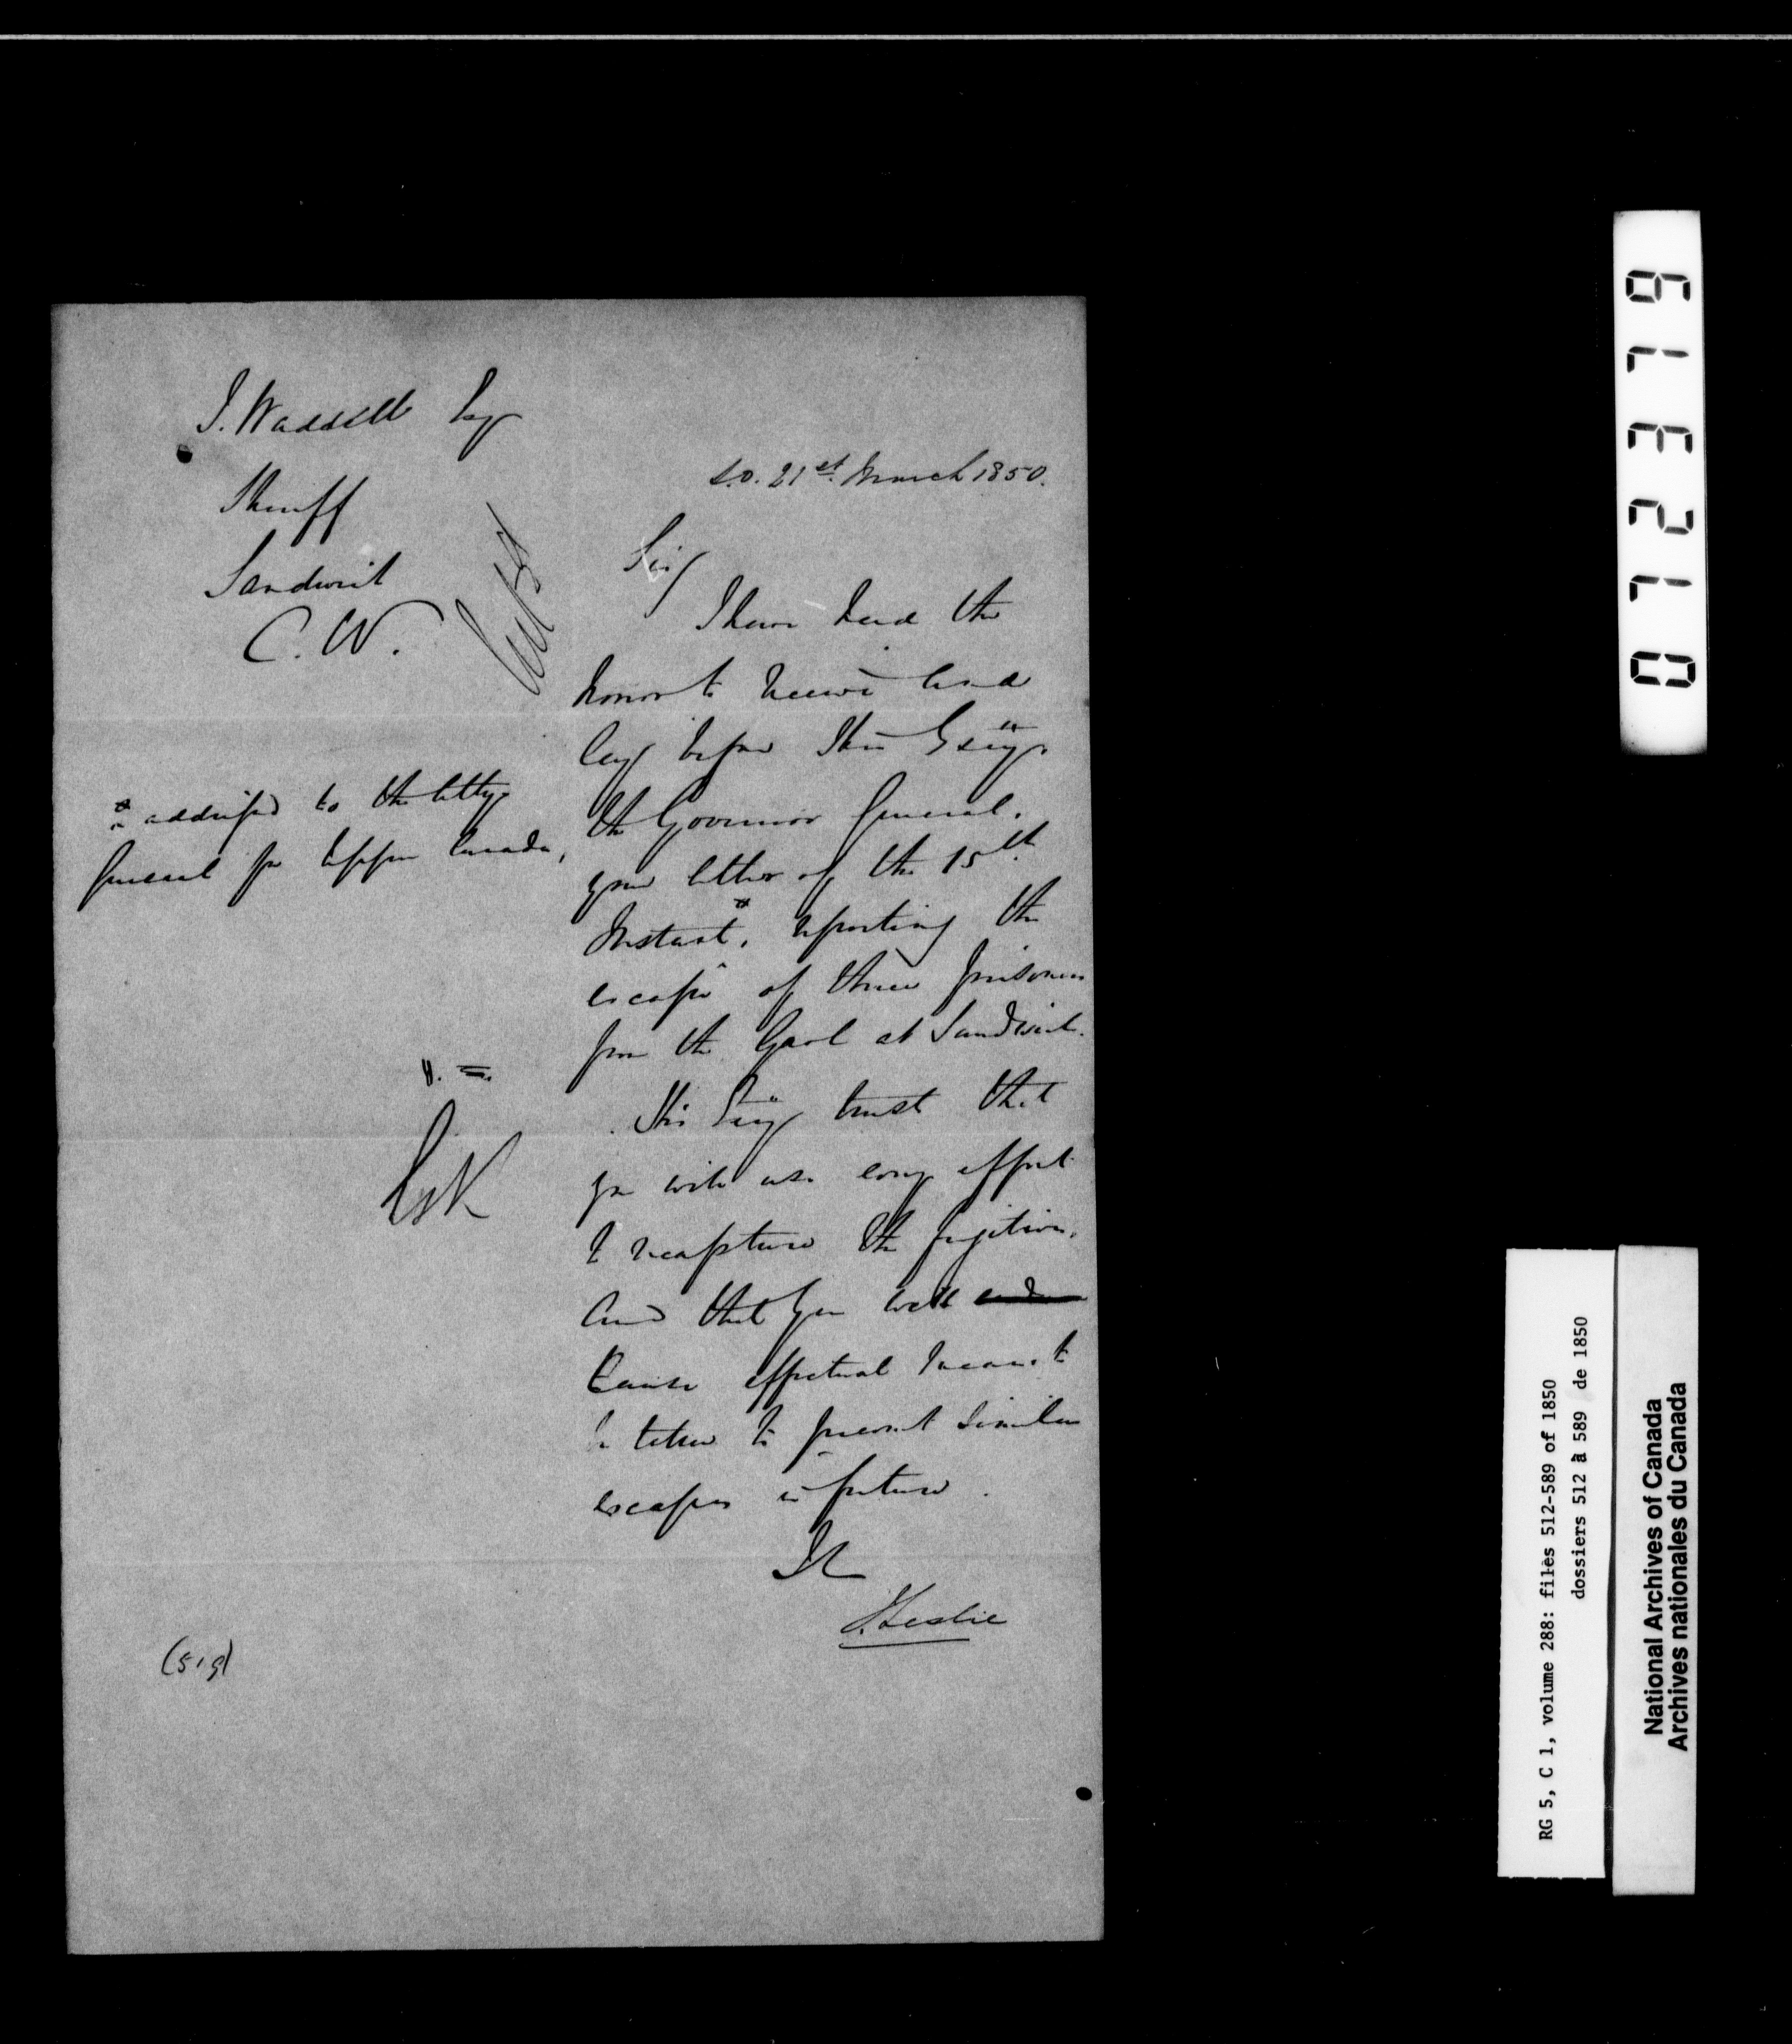 J. Waddell Esq
Sheriff
Sandwich
C. W.
S.O. 21st March 1850.
Sir/
I have had the
honor to receive and
lay before His Excy.
the Governor General,
your letter of the 15th
Instant, * reporting the
escape of three prisoners
from the Gaol at Sandwich.
* addressed to the Atty
General for Upper Canada,
His Excy trusts that
you will use every effort
to recapture the fugitives,
and that you will
cause effectual means to
be taken to prevent similar
escapes in future.
J. Leslie
(519)
012319
RG 5, C 1, volume 288: files 512-589 of 1850
dossiers 512 à 589 de 1850
National Archives of Canada
Archives nationales du Canada